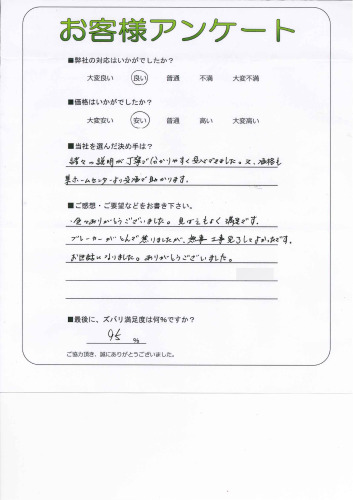 お客様アンケート
■弊社の対応はいかがでしたか?
大変良い 良い 普通 不満 大変不満
■価格はいかがでしたか?
大変安い 安い 普通 高い 大変高い
■当社を選んだ決め手は?
諸々の説明が丁寧で分かりやすく安心できました。又、価格も
某ホームセンターより安価で助かります。
■ご感想・ご要望などをお書き下さい。
色々ありがとうございました。見ばえもよく満足です。
ブレーカーがとんで焦りましたが、無事工事完了してよかったです。
お世話になりました。ありがとうございました。
■最後に、ズバリ満足度は何%ですか?
95 %
ご協力頂き、誠にありがとうございました。